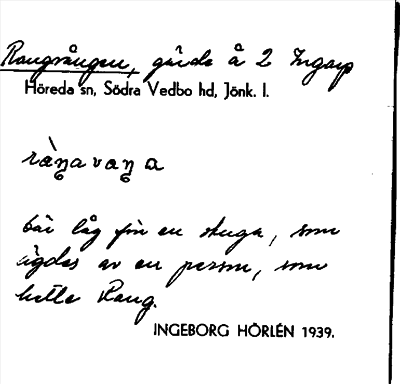 Rangvången, gärde å 2 Ingarp
Höreda sn, Södra Vedbo hd, Jönk. l.
ràŋavaŋa
här låg förr en stuga, som
ägdes av en person, som
hette Rang.
INGEBORG HÖRLÉN 1939.